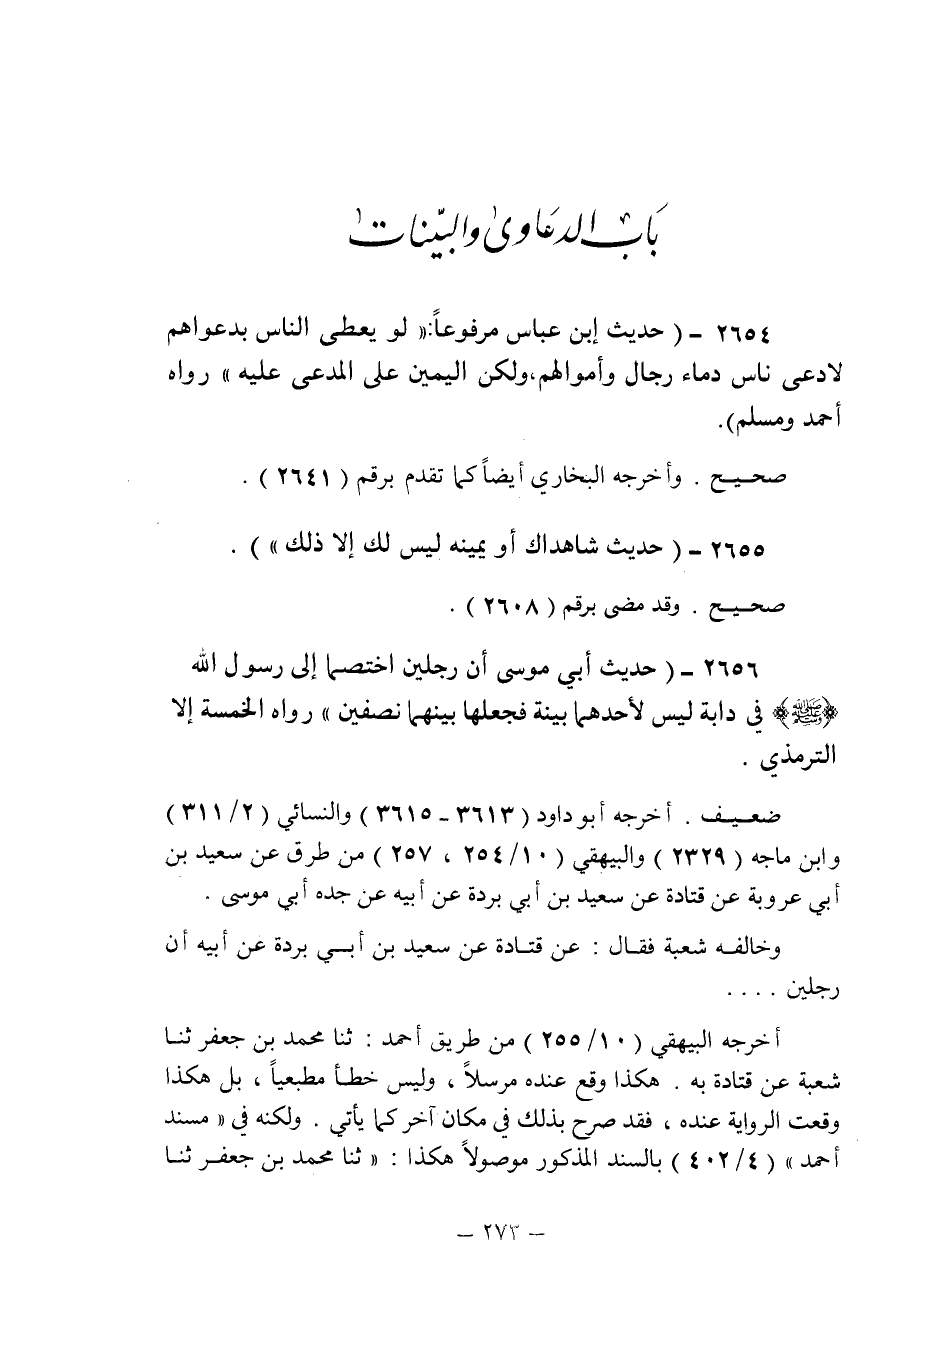 باب الدعاوى والبينات
٢٦٥٤ - ( حديث إبن عباس مرفوعاً:« لو يعطى الناس بدعواهم
لادعى ناس دماء رجال وأموالهم،ولكن اليمين على المدعى عليه » رواه
أحمد ومسلم).
صحيح . وأخرجه البخاري أيضاً كما تقدم برقم ( ٢٦٤١ ) .
٢٦٥٥ - ( حديث شاهداك أو يمينه ليس لك إلا ذلك » ) .
صحيح . وقد مضى برقم ( ٢٦٠٨ ) .
٢٦٥٦ - ( حديث أبي موسى أن رجلين اختصما إلى رسول الله
﴿ﷺ﴾ في دابة ليس لأحدهما بينة فجعلها بينهما نصفين » رواه الخمسة إلا
الترمذي .
ضعيف . أخرجه أبو داود ( ٣٦١٣ - ٣٦١٥ ) والنسائي ( ٢/ ٣١١ )
وابن ماجه ( ٢٣٢٩ ) والبيهقي ( ١٠/ ٢٥٤ ، ٢٥٧ ) من طرق عن سعيد بن
أبي عروبة عن قتادة عن سعيد بن أبي بردة عن أبيه عن جده أبي موسى .
وخالفه شعبة فقال : عن قتادة عن سعيد بن أبي بردة عن أبيه أن
رجلين . . . .
أخرجه البيهقي ( ١٠/ ٢٥٥ ) من طريق أحمد : ثنا محمد بن جعفر ثنا
شعبة عن قتادة به . هكذا وقع عنده مرسلاً ، وليس خطأ مطبعياً ، بل هكذا
وقعت الرواية عنده ، فقد صرح بذلك في مكان آخر كما يأتي . ولكنه في « مسند
أحمد » ( ٤/ ٤٠٢ ) بالسند المذكور موصولاً هكذا : « ثنا محمد بن جعفر ثنا
- ٢٧٣ -